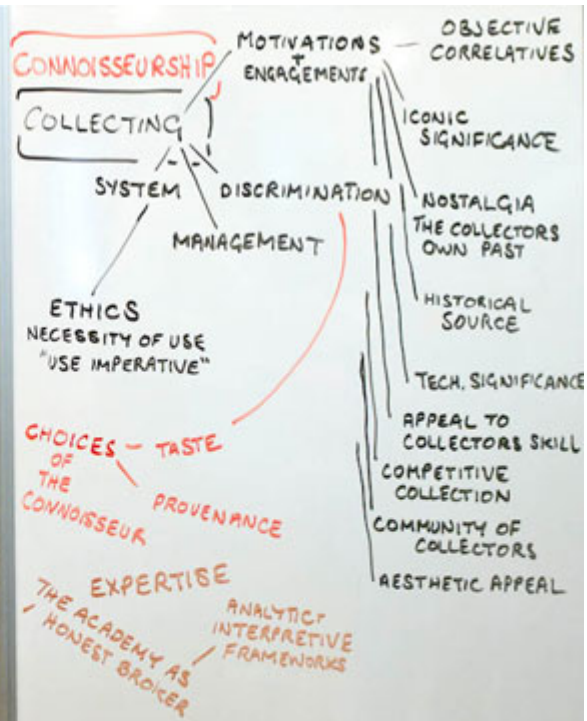 CONNOISSEURSHIP
COLLECTING
MOTIVATIONS
+
ENGAGEMENTS
OBJECTIVE
CORRELATIVES
ICONIC
SIGNIFICANCE
NOSTALGIA
THE COLLECTORS
OWN PAST
HISTORICAL
SOURCE
TECH. SIGNIFICANCE
APPEAL TO
COLLECTORS SKILL
COMPETITIVE
COLLECTION
COMMUNITY OF
COLLECTORS
AESTHETIC APPEAL
SYSTEM
DISCRIMINATION
MANAGEMENT
ETHICS
NECESSITY OF USE
"USE IMPERATIVE"
CHOICES
OF
THE
CONNOISSEUR
TASTE
PROVENANCE
EXPERTISE
THE ACADEMY AS
HONEST BROKER
ANALYTIC+
INTERPRETIVE
FRAMEWORKS